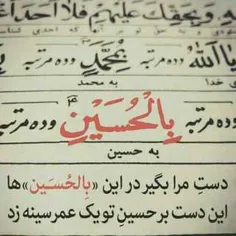 وَبِحَقِّكَ عَلَيْهِمْ فَلا اَحَدَ
يا اَللّٰهُ وده مرتبه بِمُحَمَّدٍ وده مرتبه
خدا به محمد
وده مرتبه بِالْحُسَيْنِ وده مرتبه
به حسین
دستِ مرا بگیر در این «بِالحُسَین»ها
این دست بر حسینِ تو یک عمر سینه زد